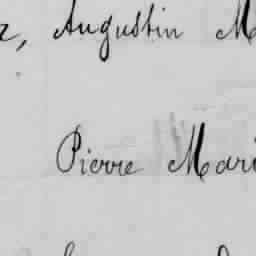 r, Augustin M
Pierre Mari